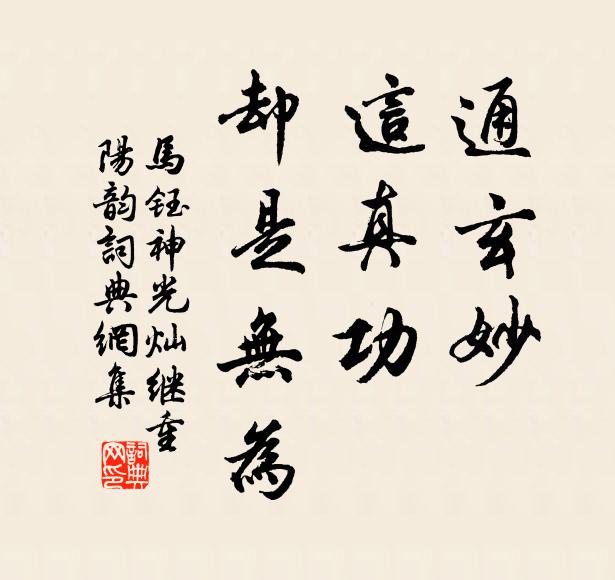 通玄妙
這真功
却是無為
馬鈺神光灿继重
陽韵詞典網集
詞典
网印